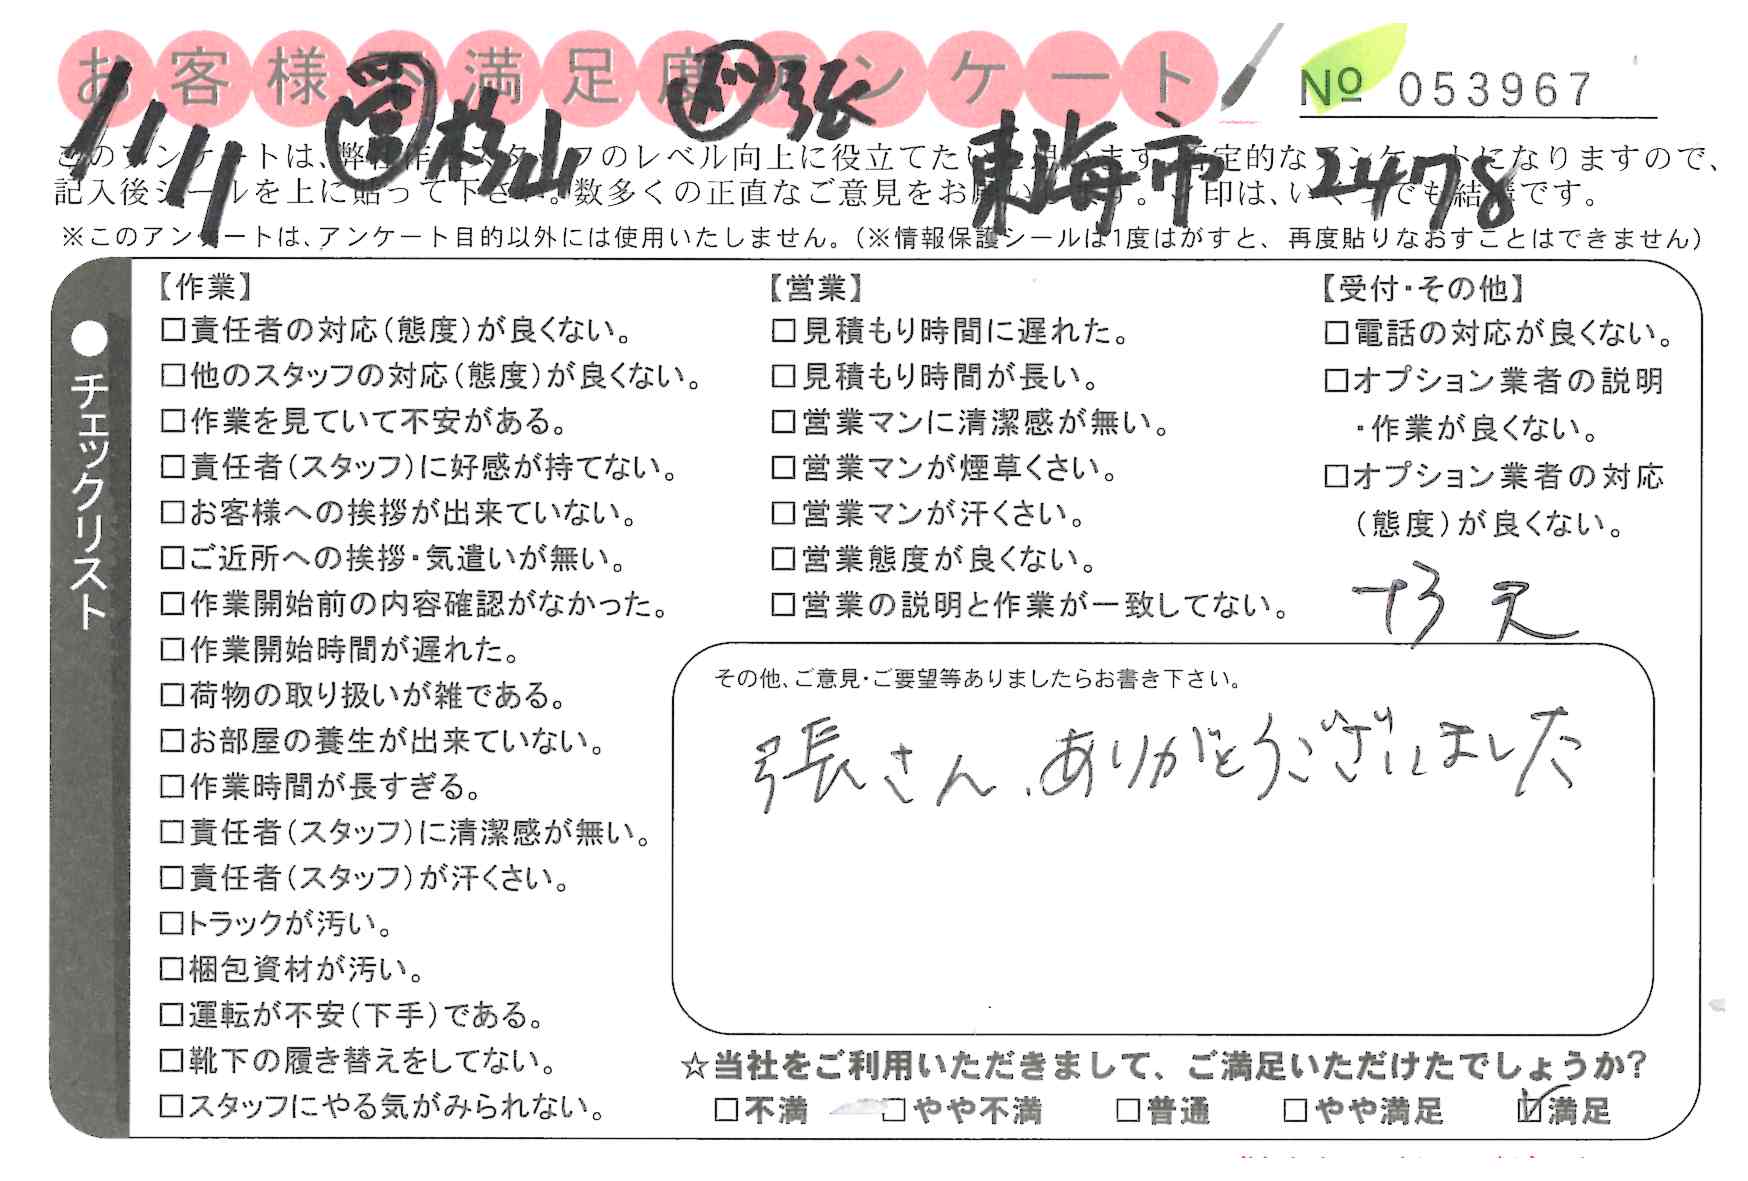 お客様不満足度アンケート
№ 053967
11/11 営 杉山 ド 張
東海市 2478
このアンケートは、弊社作業スタッフのレベル向上に役立てたいと思います。否定的なアンケートになりますので、
記入後シールを上に貼って下さい。数多くの正直なご意見をお願いします。レ印は、いくつでも結構です。
※このアンケートは、アンケート目的以外には使用いたしません。(※情報保護シールは1度はがすと、再度貼りなおすことはできません)
●チェックリスト
【作業】
□責任者の対応(態度)が良くない。
□他のスタッフの対応(態度)が良くない。
□作業を見ていて不安がある。
□責任者(スタッフ)に好感が持てない。
□お客様への挨拶が出来ていない。
□ご近所への挨拶・気遣いが無い。
□作業開始前の内容確認がなかった。
□作業開始時間が遅れた。
□荷物の取り扱いが雑である。
□お部屋の養生が出来ていない。
□作業時間が長すぎる。
□責任者(スタッフ)に清潔感が無い。
□責任者(スタッフ)が汗くさい。
□トラックが汚い。
□梱包資材が汚い。
□運転が不安(下手)である。
□靴下の履き替えをしてない。
□スタッフにやる気がみられない。
【営業】
□見積もり時間に遅れた。
□見積もり時間が長い。
□営業マンに清潔感が無い。
□営業マンが煙草くさい。
□営業マンが汗くさい。
□営業態度が良くない。
□営業の説明と作業が一致してない。
【受付・その他】
□電話の対応が良くない。
□オプション業者の説明
・作業が良くない。
□オプション業者の対応
(態度)が良くない。
その他、ご意見・ご要望等ありましたらお書き下さい。
張さん、ありがとうございました
☆当社をご利用いただきまして、ご満足いただけたでしょうか?
□不満 □やや不満 □普通 □やや満足 ☑満足